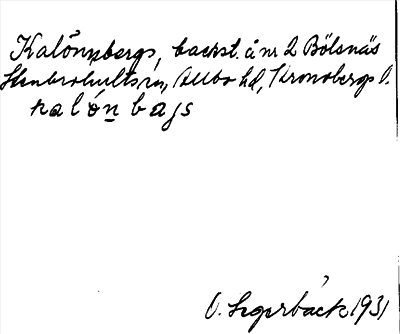 Kalönnbergs, backst. å nr 2 Bölsnäs
Stenbrohults sn, Allbo hd, Kronobergs l.
kalónbærjs
O. Segerbäck 1931